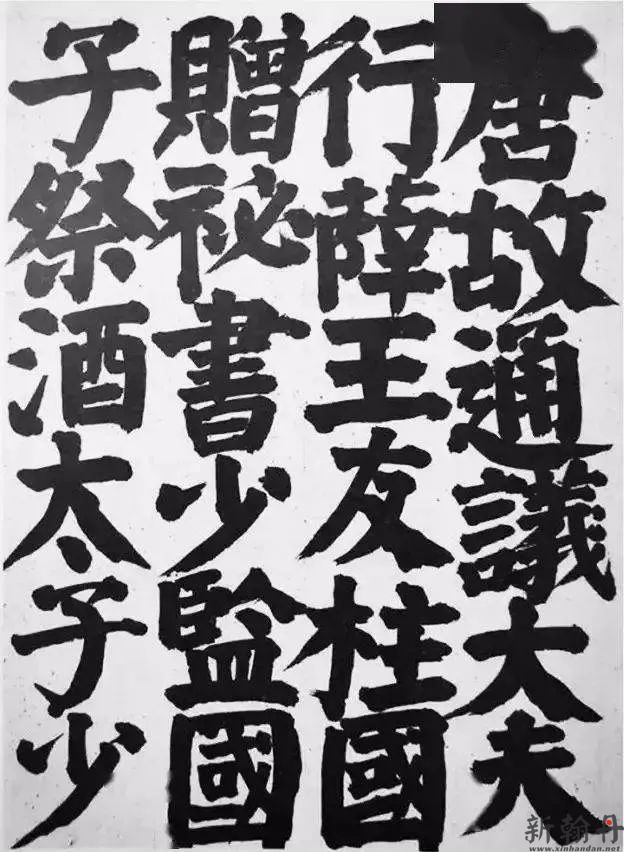 唐故通議大夫
行薛王友柱國
贈祕書少監國
子祭酒太子少
新翰丹
www.xinhandan.net